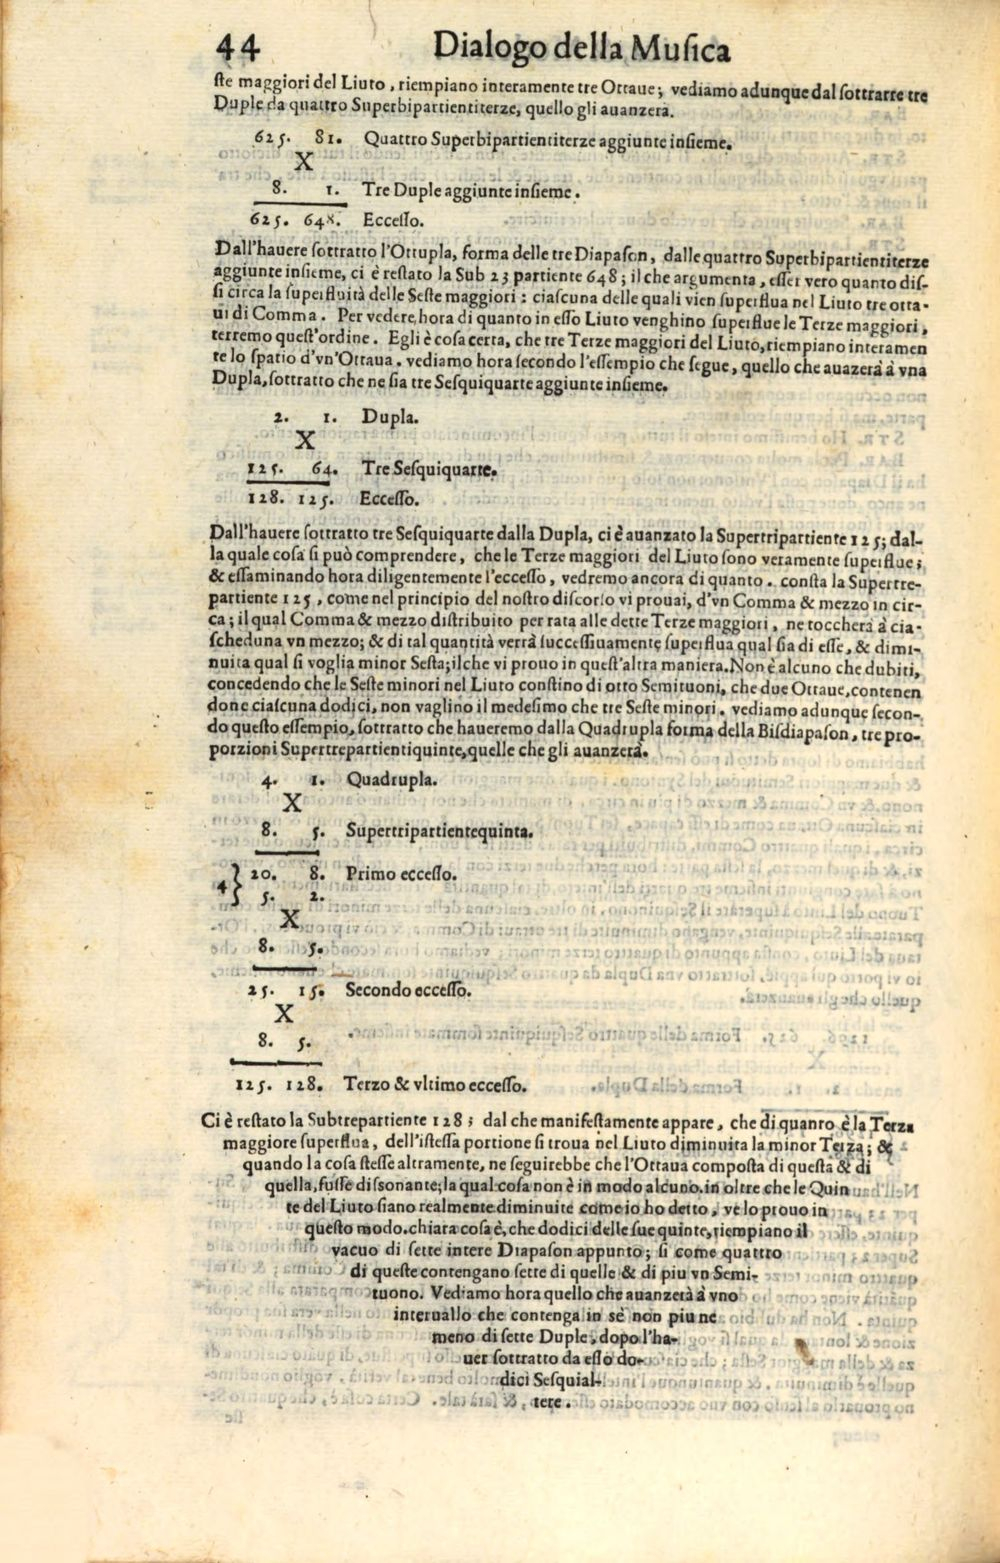 44 Dialogo della Musica
ste maggiori del Liuto, riempiano interamente tre Ottaue; vediamo adunque dal sottrarre tre
Duple da quattro Superbipartientiterze, quello gli auanzera.
625. 81. Quattro Superbipartientiterze aggiunte insieme.
X
8. 1. Tre Duple aggiunte insieme.
625. 648. Eccesso.
Dall'hauere sottratto l'Ottupla, forma delle tre Diapason, dalle quattro Superbipartientiterze
aggiunte insieme, ci è restato la Sub 23 partiente 648; il che argumenta, esser vero quanto dis-
si circa la superfluità delle Seste maggiori: ciascuna delle quali vien superflua nel Liuto tre otta-
ui di Comma. Per vedere hora di quanto in esso Liuto venghino superflue le Terze maggiori,
terremo quest'ordine. Egli è cosa certa, che tre Terze maggiori del Liuto, riempiano interamen
te lo spatio d'vn'Ottaua. vediamo hora secondo l'essempio che segue, quello che auazerà à vna
Dupla, sottratto che ne sia tre Sesquiquarte aggiunte insieme.
2. 1. Dupla.
X
125. 64. Tre Sesquiquarte.
128. 125. Eccesso.
Dall'hauere sottratto tre Sesquiquarte dalla Dupla, ci è auanzato la Supertripartiente 125; dal-
la quale cosa si può comprendere, che le Terze maggiori del Liuto sono veramente superflue;
& essaminando hora diligentemente l'eccesso, vedremo ancora di quanto. consta la Supertre-
partiente 125, come nel principio del nostro discorso vi prouai, d'vn Comma & mezzo in cir-
ca; il qual Comma & mezzo distribuito per rata alle dette Terze maggiori, ne toccherà à cia-
scheduna vn mezzo; & di tal quantità verrà successiuamente superflua qual sia di esse, & dimi-
nuita qual si voglia minor Sesta; ilche vi prouo in quest'altra maniera. Non è alcuno che dubiti,
concedendo che le Seste minori nel Liuto constino di otto Semituoni, che due Ottaue, contenen
done ciascuna dodici, non vaglino il medesimo che tre Seste minori. vediamo adunque secon-
do questo essempio, sottratto che haueremo dalla Quadrupla forma della Bisdiapason, tre pro-
porzioni Supertrepartientiquinte, quelle che gli auanzerà.
4. 1. Quadrupla.
X
8. 5. Supertripartientequinta.
20. 8. Primo eccesso.
4}
5. 2.
X
8. 5.
25. 15. Secondo eccesso.
X
8. 5.
125. 128. Terzo & vltimo eccesso.
Ci è restato la Subtrepartiente 128; dal che manifestamente appare, che di quanto è la Terza
maggiore superflua, dell'istessa portione si troua nel Liuto diminuita la minor Terza; &
quando la cosa stesse altramente, ne seguirebbe che l'Ottaua composta di questa & di
quella, fusse dissonante; la qual cosa non è in modo alcuno. in oltre che le Quin
te del Liuto siano realmente diminuite come io ho detto, ve lo prouo in
questo modo. chiara cosa è, che dodici delle sue quinte, riempiano il
vacuo di sette intere Diapason appunto; si come quattro
di queste contengano sette di quelle & di piu vn Semi-
tuono. Vediamo hora quello che auanzerà à vno
interuallo che contenga in se non piu ne
meno di sette Duple, dopo l'ha-
uer sottratto da esso do-
dici Sesquial-
tere.